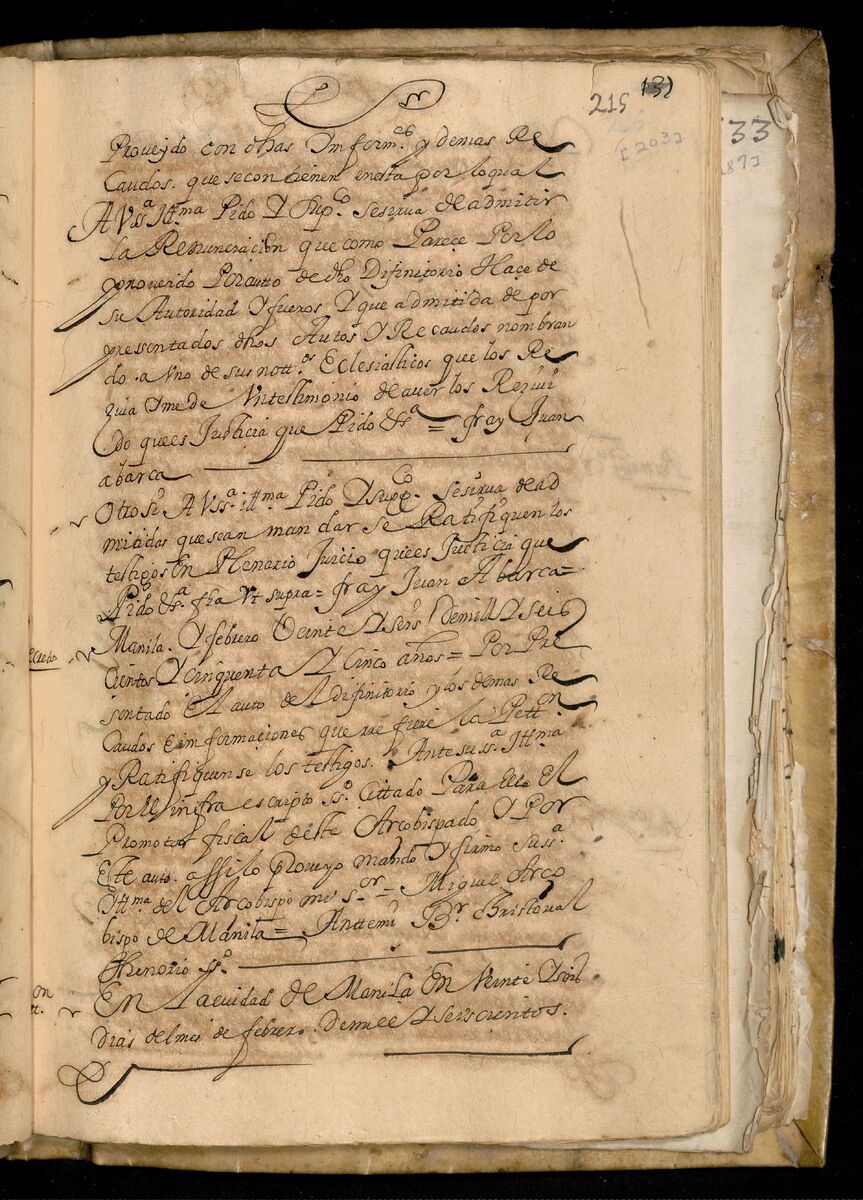 215 132
[203]
133
Proveydo con dhas Imform.es y demas Re
Caudos. que secontienen enesta por loqual
A VSs.a Ill.ma Pido Y Sup.co Seserva deadmitir
La Renunciacion que como Parece Porlo
proveido Porauto de dho Difinitorio Haçe de
su Autoridad Y fueros Y que admitida de por
pressentados dhos Autos Y Recaudos nombran
do. a Vno de sus nott.os Eclesiasticos que los Re
zuia Yme de Vntestimonio deaver los Rezuui
do quees Justicia que Pido &s.a = fray Juan
abarca
Otro si A VSs.a ill.ma Pido Y sup.co Seserva de ad
mitidas quesean mandar se Ratifiquen los
testigos En Plenario Juicio quees Justicia que
Pido &s.a fha Vt supra = fray Juan Abarca =
Manila. Y febrero Veinte Y seis demill Y seis
Cientos Y cinquenta Y Cinco años = Por Pre
sentado El auto del difinitorio y los demas Re
Caudos e imformaciones que rrefiere la Pett.on
y Ratifiquense los testigos. Ante su ss.a Ill.ma
Por El infra escripto ss.o Cittado Para Ello El
Promotor fiscal deste Arcobispado Y Por
Este auto. assilo proveyo mando Y firmo suss.a
Yll.ma del Arcobispo mi s.or = Miguel Arço
bispo de Manila = Anttemi B.r Christoval
Thenorio ss.o
En La ciudad de Manila En Veinte Y seis
dias del mes de febrero. demill Y seiscientos.